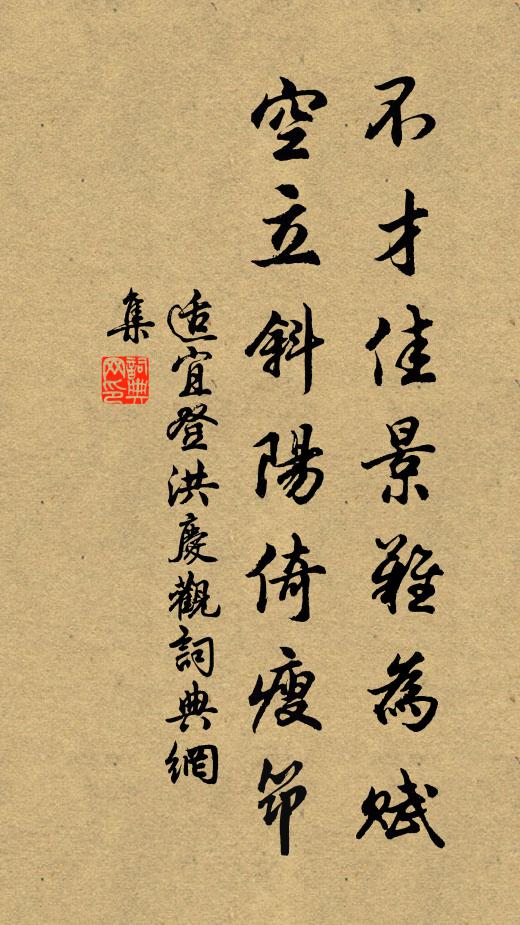 不才佳景難為賦
空立斜陽倚瘦笻
适宜登洪慶觀詞典網
集
詞典
网印